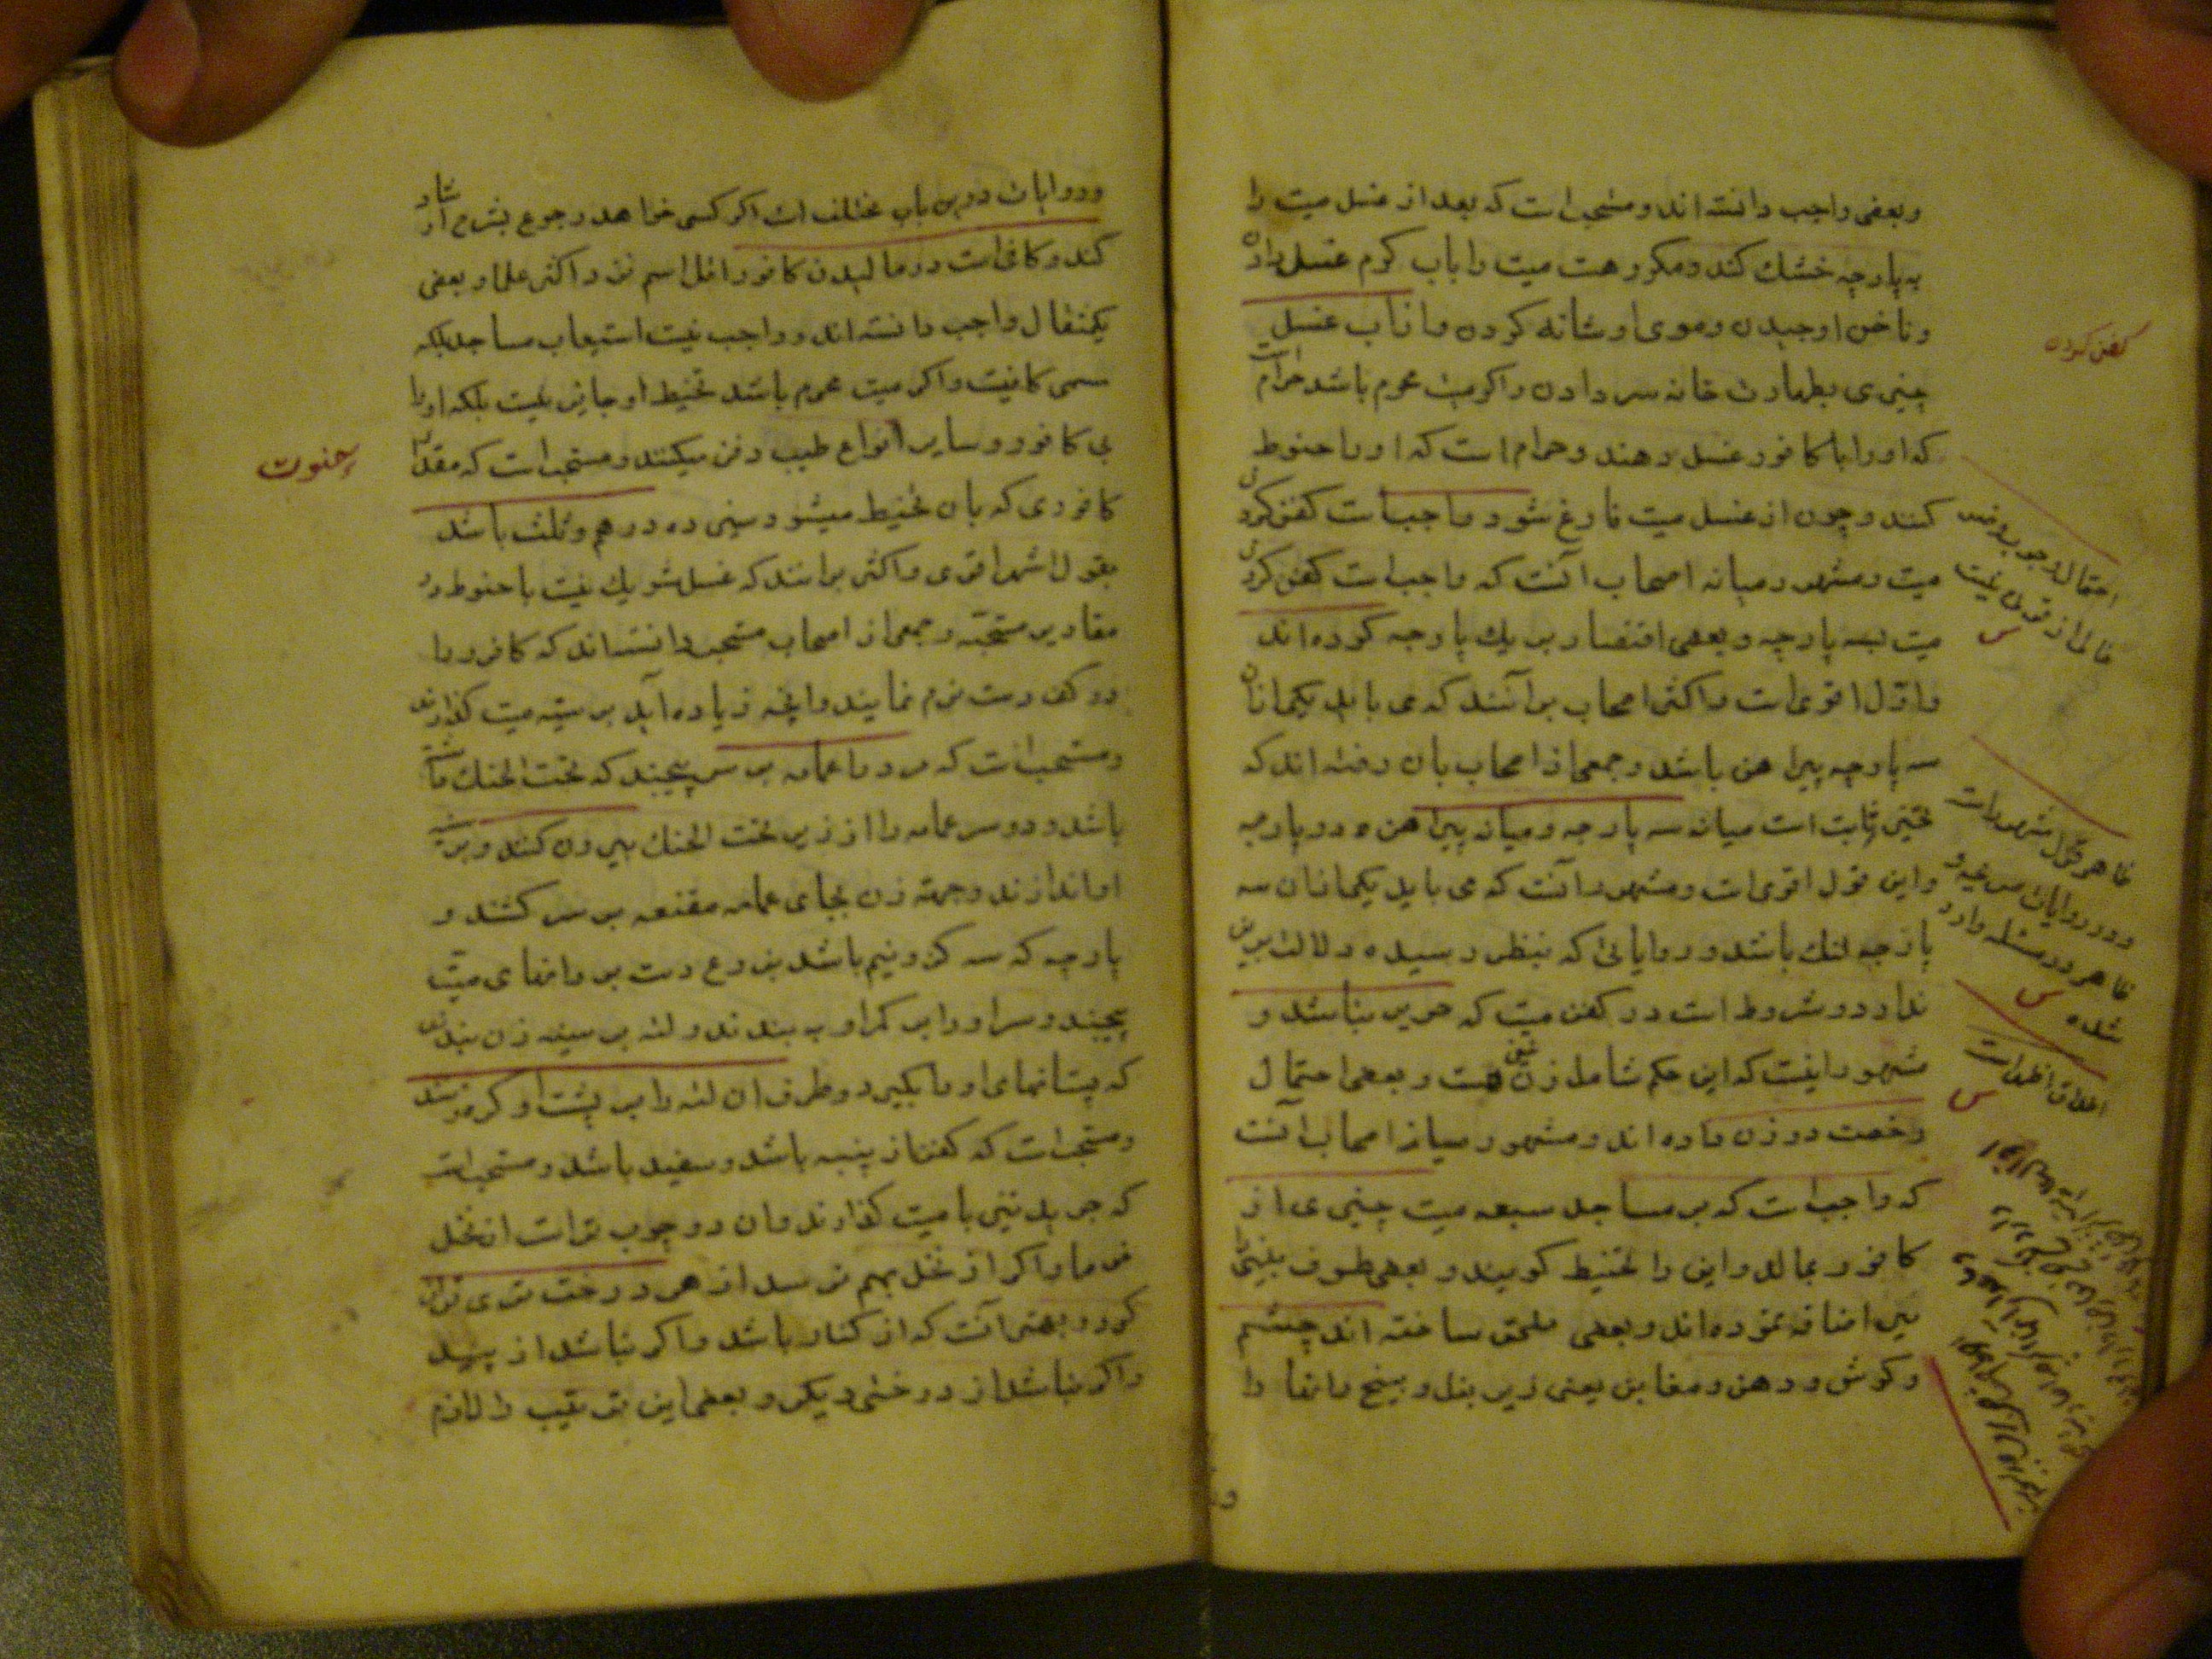 وبعضی واجب دانسته اند و مستحب است که بعد از غسل میت را
به پارچه خشك کند و مکروهست میت را باب کرم غسل دادن
و ناخن او چیدن و موی او شانه کردن و ناب غسل
چیزی بطهارت خانه سر دادن و اکر میت محرم باشد حرام است
که او را با کافور غسل دهند و حرام است که او را حنوط
کنند و چون از غسل میت فارغ شود واجب است کفن کردن
میت و مشهور میانه اصحاب آنست که واجب است کفن کردن
میت بسه پارچه و بعضی اقتصار بر یك پارچه کرده اند
و اول اقوی است و اکثر اصحاب بر آنند که می باید یکی از ان
سه پارچه پیراهن باشد و جمعی از اصحاب بان رفته اند که
تخییر ثابت است میانه سه پارچه و میانه پیراهن و دو پارچه
و این قول اقوی است و مشهور آنست که می باید یکی از ان سه
پارچه لنك باشد و روایاتی که بنظر رسیده دلالت برین
ندارد و شروط است در کفن میت که حریر نباشد و
مشهور اینست که این حکم شامل زن نیز هست و بعضی احتمال
رخصت در زن داده اند و مشهور میان اصحاب آنست
که واجب است که بر مساجد سبعه میت چیزی از
کافور بمالند و این را تحنیط کویند و بعضی طرف بینی را
نیز اضافه نموده اند و بعضی ملحق ساخته اند چشم
و کوش و دهن و مغابن یعنی زیر بغل و بیخ رانها را
کفن کردن
احتمال وجوب وضو
خالی از قوتی نیست
ظاهر قول مشهور است
و در روایات
ظاهر در مسئله وارد
شده
اطلاق اظهر است
و روایات درین باب مختلف است اکر کسی خواهد رجوع بشرح ارشاد
کند و کافی است در مالیدن کافور اقل اسم نزد اکثر علما و بعضی
یکمثقال واجب دانسته اند و واجب نیست استیعاب مساجد بلکه
مسمی کافیست و اکر میت محرم باشد تحنیط او جایز نیست بلکه او را
بی کافور و سایر انواع طیب دفن میکنند و مستحب است که مقدار
کافوری که بان تحنیط میشود سیزده درهم و ثلث باشد
بقول اشهر اقوی و اکثر برانند که غسل شریك نیست با حنوط در
مقادیر مستحبه و جمعی از اصحاب مستحب دانسته اند که کافور را
در کف دست نرم نمایند و انچه زیاده آید بر سینه میت کذارند
و مستحب است که مرد را عمامه بر سر پیچند که تحت الحنك داشته
باشد و دو سر عمامه را از زیر تحت الحنك بیرون کنند و بر سینه
او اندازند و جهة زن بجای عمامه مقنعه بر سر کشند و
پارچه که سه کز و نیم باشد بذرع دست بر رانهای میت
پیچند و سر او را بر کمر او به بندند و لته بر سینه زن بندند
که پستانهای او را بکیرد و طرف ان لته را بر پشت او کره زنند
و مستحب است که کفن از پنبه باشد و سفید باشد و مستحب است
که جریدتین با میت کذارند و ان دو چوب تر است از نخل
خرما و اکر از نخل بهم نرسد از هر درخت تری توان
کرد و بهتر آنست که از کنار باشد و اکر نباشد از بید
و اکر نباشد از درختی دیکر و بعضی این ترتیب را لازم
حنوت